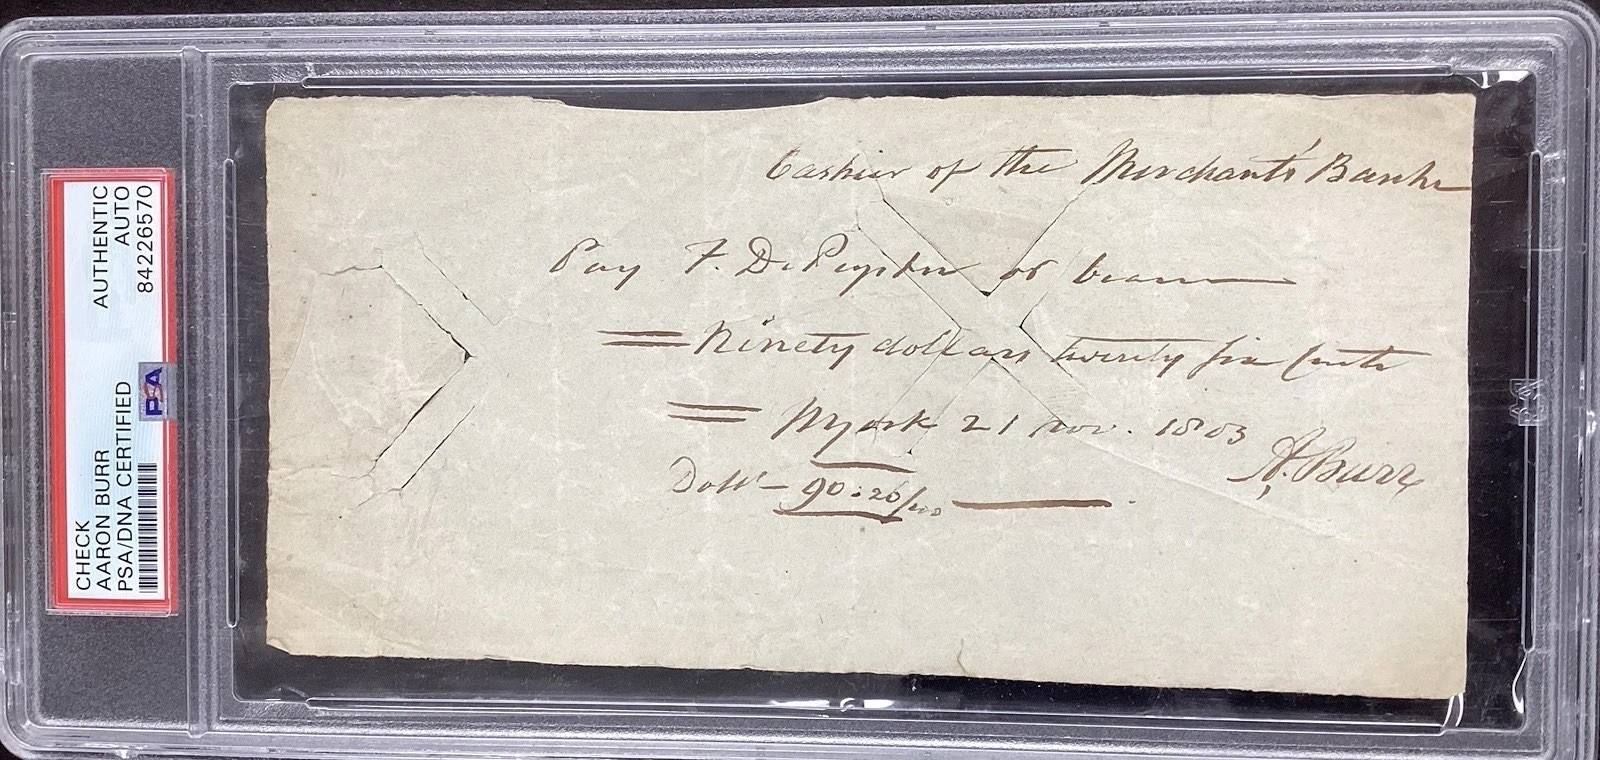 CHECK
AARON BURR
PSA/DNA CERTIFIED
AUTHENTIC
AUTO
84226570
PSA
Cashier of the Merchants' Bank
Pay F. De Peyster or bearer
Ninety dollars twenty six Cents
NYork 21 Nov. 1803
A. Burr
Dolls 90:26/100